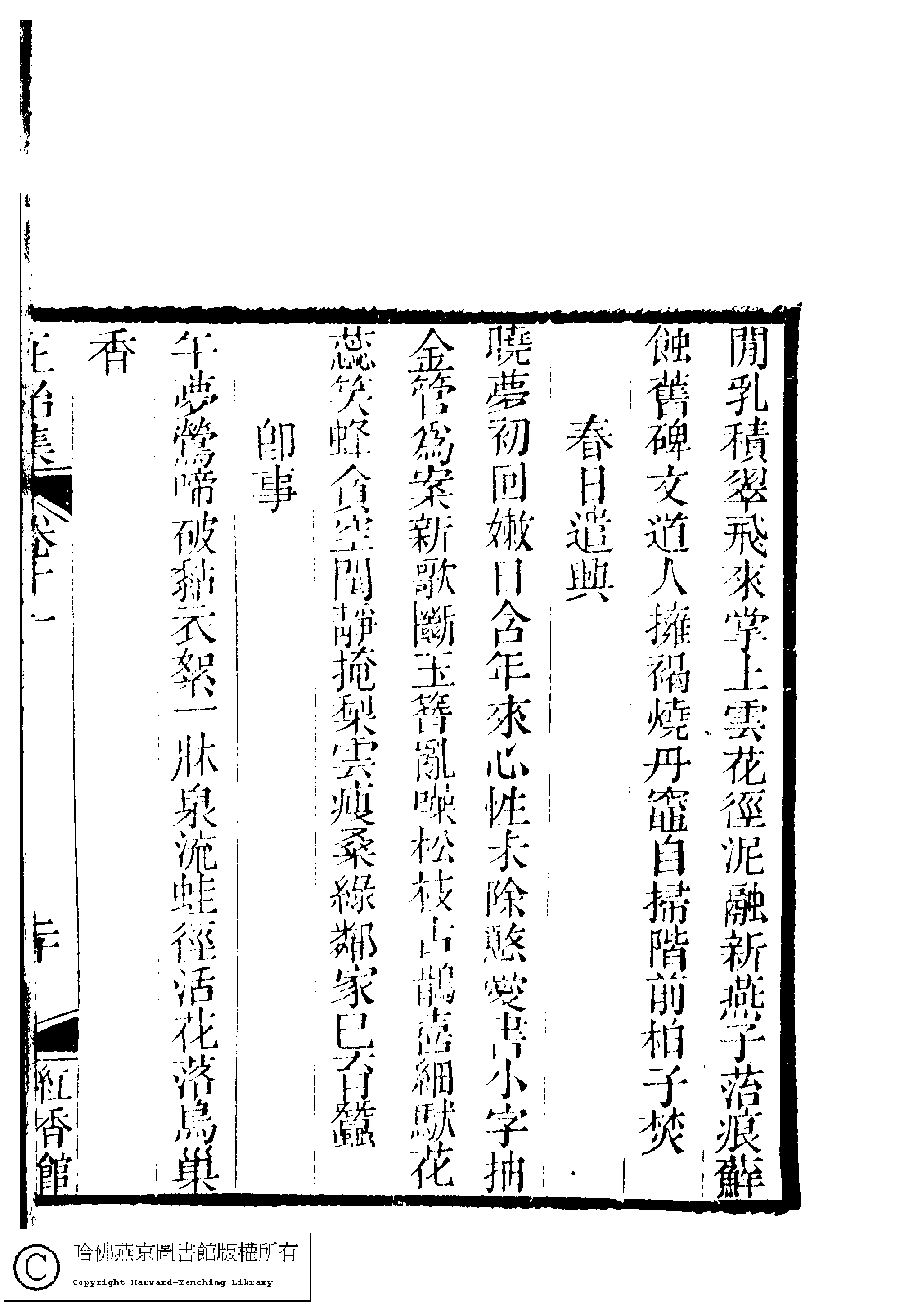 閒乳積翠飛來掌上雲花徑泥融新燕子菭痕蘚
蝕舊碑文道人擁褐燒丹竈自掃階前柏子焚
春日遣興
曉夢初回嫩日含年來心性未除憨愛書小字抽
金管爲案新歌斷玉簪亂噪松枝占鵲喜細馱花
蕊笑蜂貪空閨靜掩梨雲瘦桑綠鄰家已否蠶
卽事
午夢鶯啼破黏衣絮一牀泉流蛙徑活花落鳥巢
香
正始集 卷十一 二十 紅香館
哈佛燕京圖書館版權所有
Copyright Harvard-Yenching Library